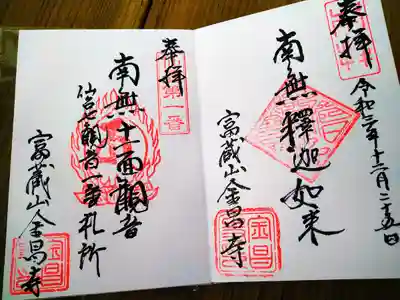 奉拝
令和
年十二月二十五日
南無釋迦如来
富蔵山金昌寺
金昌
奉拝
第一番
南無十一面観音
仙台七観音一番札所
富蔵山金昌寺
金昌